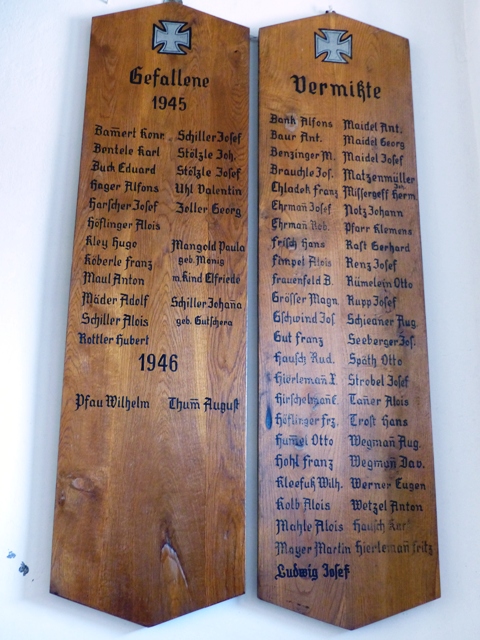 Gefallene
1945
Bam̅ert Konr. Schiller Josef
Bentele Karl Stölzle Joh.
Buch Eduard Stölzle Josef
Hager Alfons Uhl Valentin
Harscher Josef Zeller Georg
Höflinger Alois
Kley Hugo Mangold Paula
Köberle Franz geb. Mönig
Maul Anton m. Kind Elfriede
Mäder Adolf Schiller Johan̅a
Schiller Alois geb. Gutschera
Rottler Hubert
1946
Pfau Wilhelm Thum̅ August
Vermißte
Bank Alfons Maidel Ant.
Baur Ant. Maidel Georg
Benzinger M. Maidel Josef
Brauchle Jos. Matzenmüller
Chladek Franz Missergeff Herm
Ehrman̅ Josef Notz Johann
Ehrman̅ Rob. Pfarr Klemens
Frisch Hans Rast Gerhard
Fimpel Alois Renz Josef
Frauenfeld B. Rümelein Otto
Grösser Magn. Rupp Josef
Gschwind Jos. Schiean̅er Aug.
Gut Franz Seeberger Jos.
Hausch Rud. Späth Otto
Hierleman̅ X. Strobel Josef
Tan̅er Alois
Höflinger Frz. Trost Hans
Hum̅el Otto Wegman̅ Aug.
Hohl Franz Wegman̅ Dav.
Kleefuß Wilh. Werner Eugen
Kolb Alois Wetzel Anton
Mahle Alois Hausch Kar
Mayer Martin Hierleman̅ Fritz
Ludwig Josef